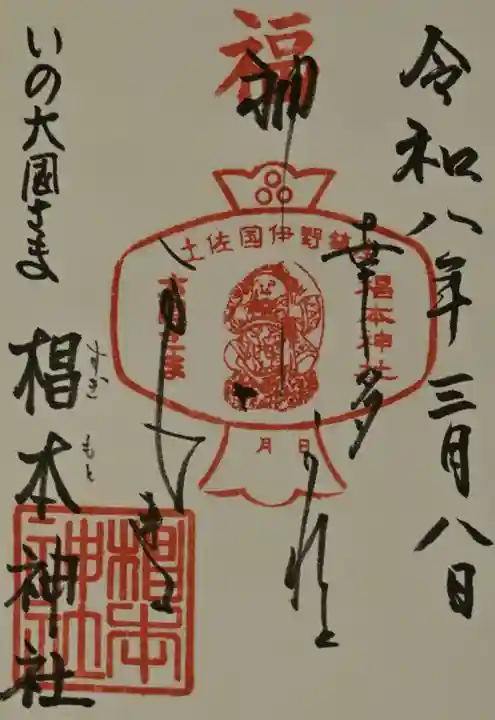 令和八年三月八日
福
幸多
かれと
土佐国伊野鎮座
椙本神社
月 日
いの大国さま
椙本神社
すぎ もと
椙本神社